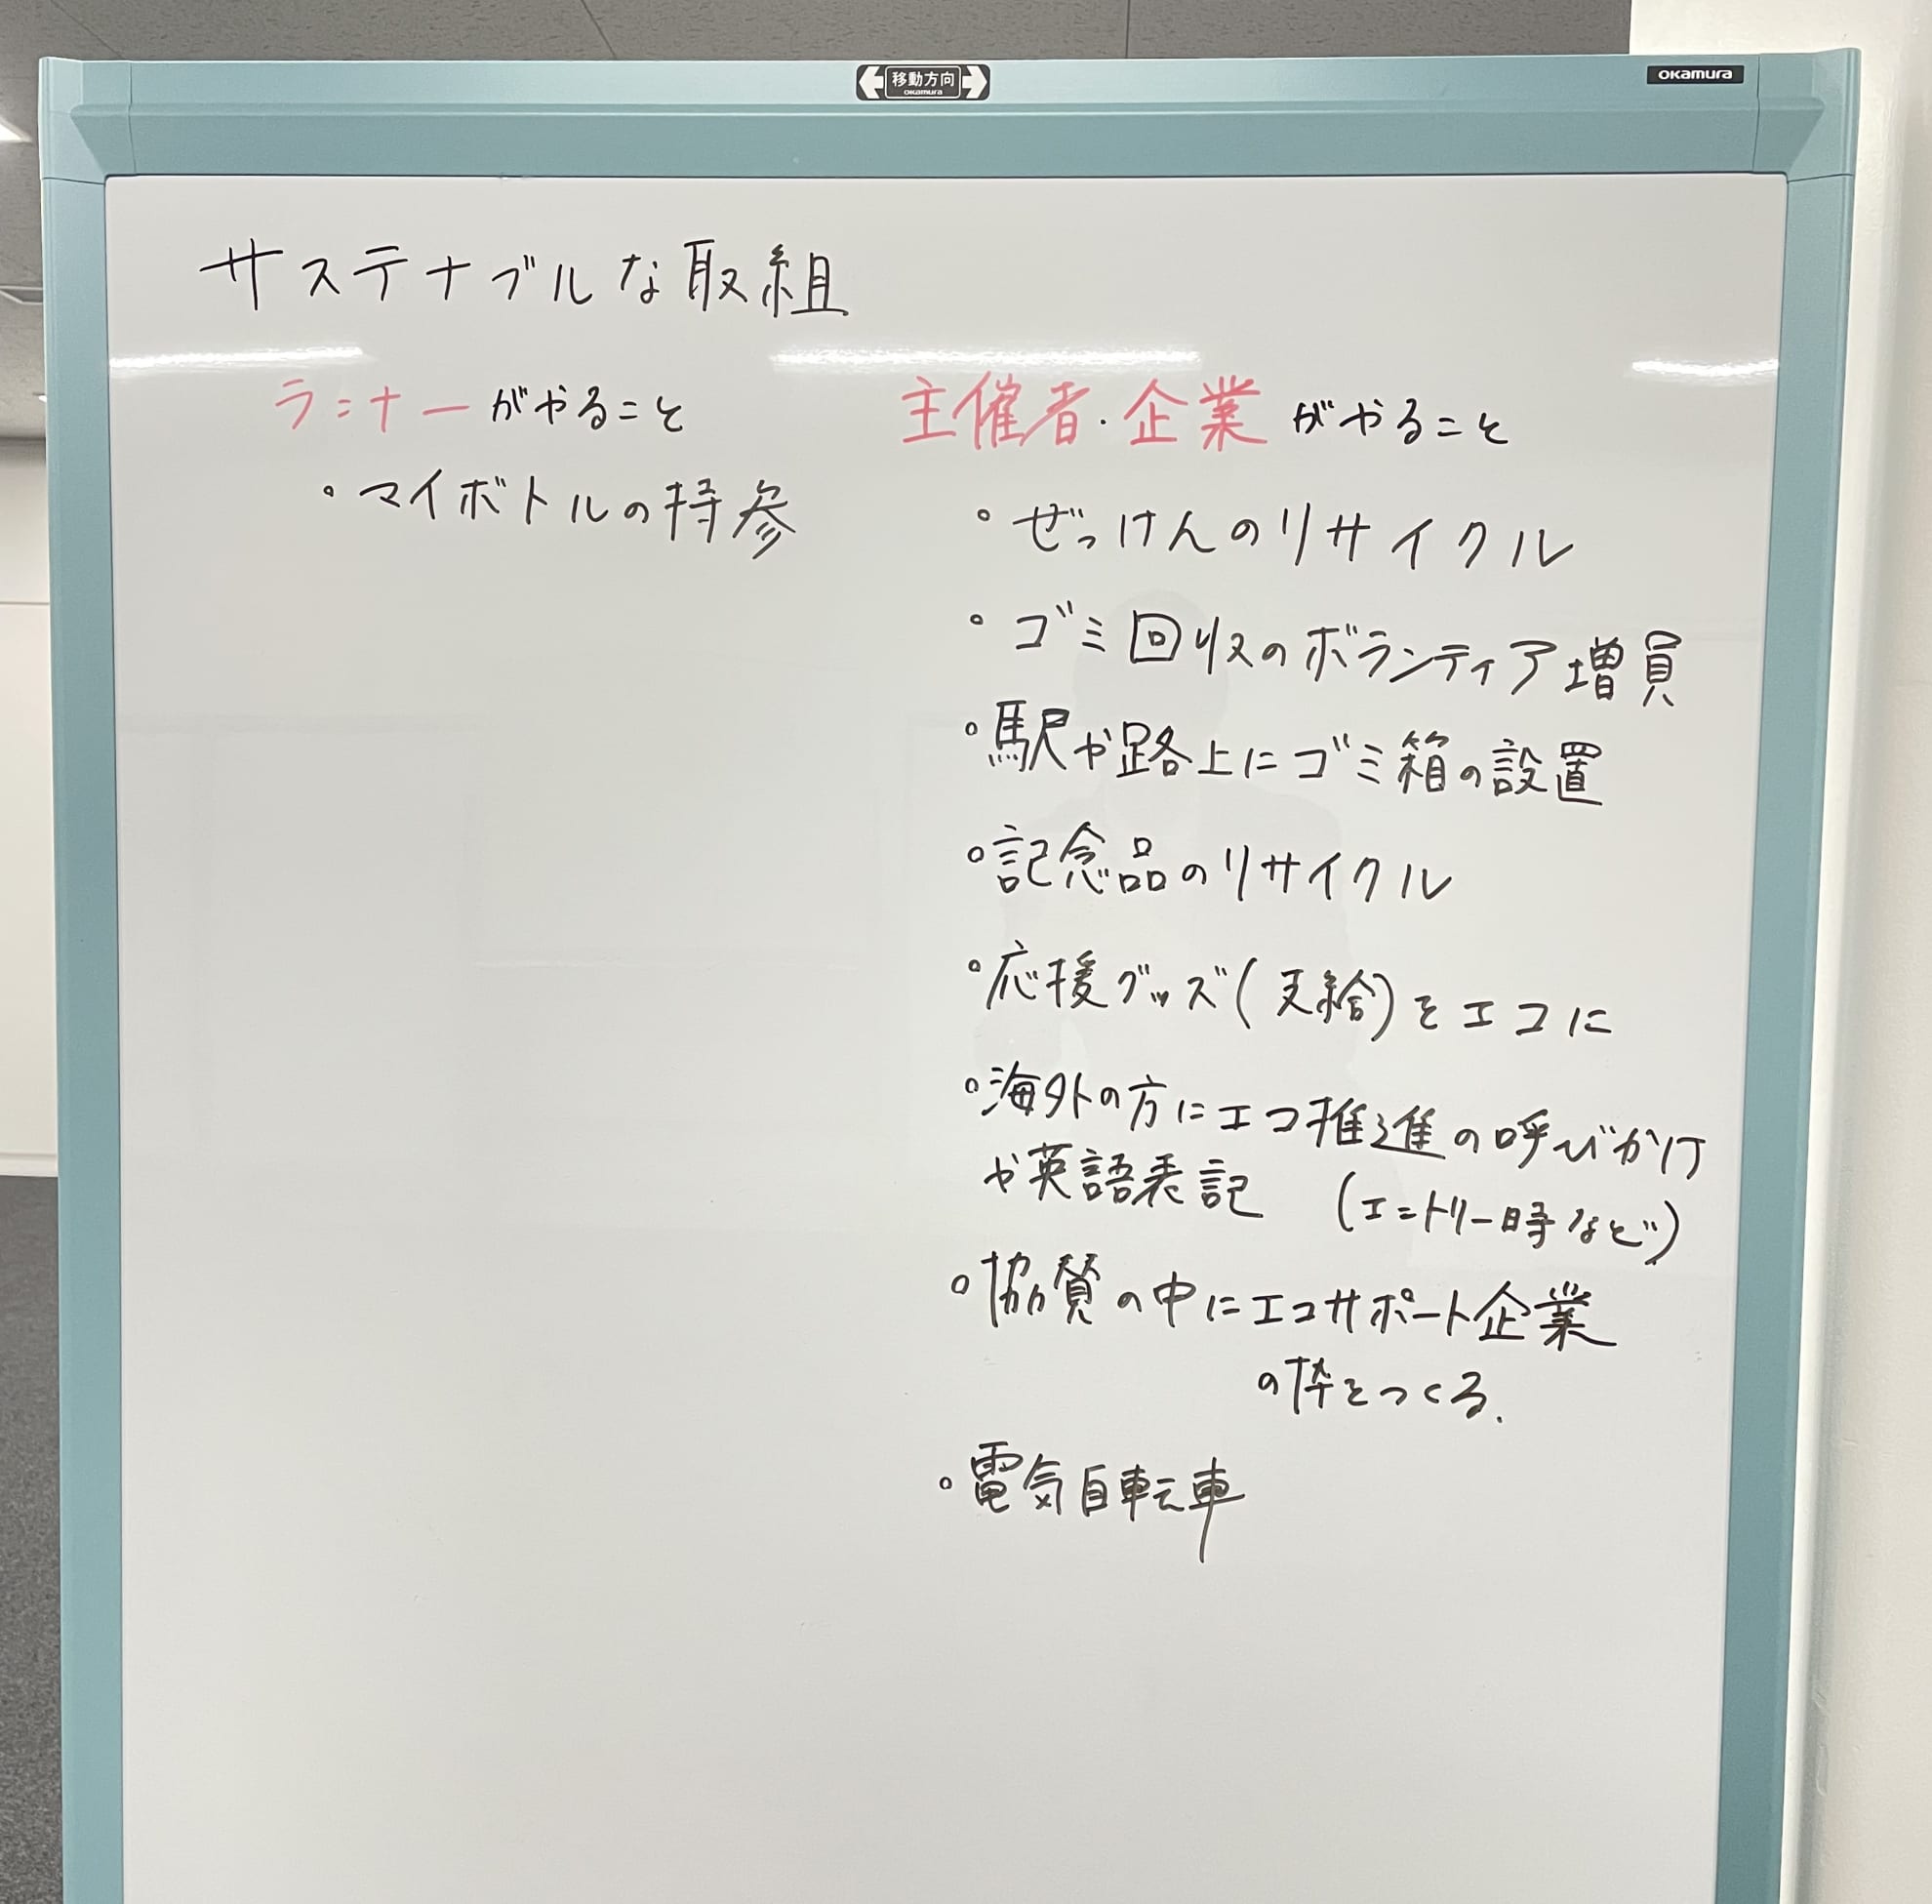 移動方向
okamura
okamura
サステナブルな取組
ランナーがやること
・マイボトルの持参
主催者・企業がやること
・ぜっけんのリサイクル
・ゴミ回収のボランティア増員
・駅や路上にゴミ箱の設置
・記念品のリサイクル
・応援グッズ(支給)をエコに
・海外の方にエコ推進の呼びかけ
や英語表記 (エントリー時など)
・協賛の中にエコサポート企業
の枠をつくる.
・電気自転車